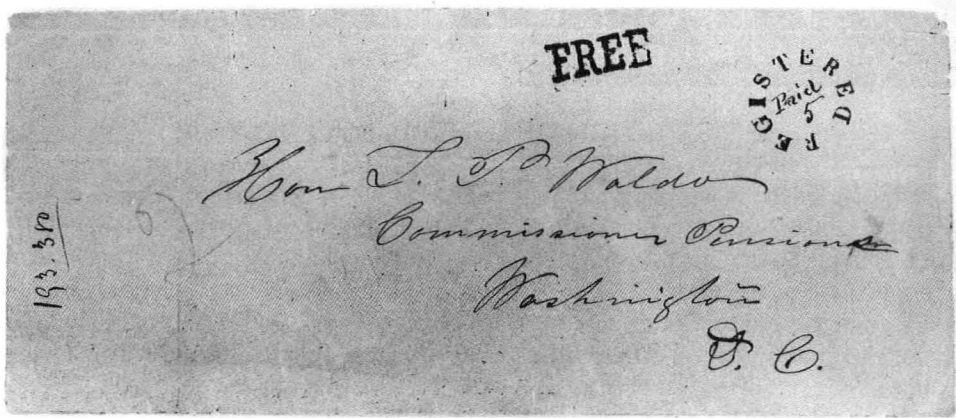 FREE
REGISTERED
Paid
5
Hon L. P. Waldo
Commissioner Pensions
Washington
D. C.
193.380